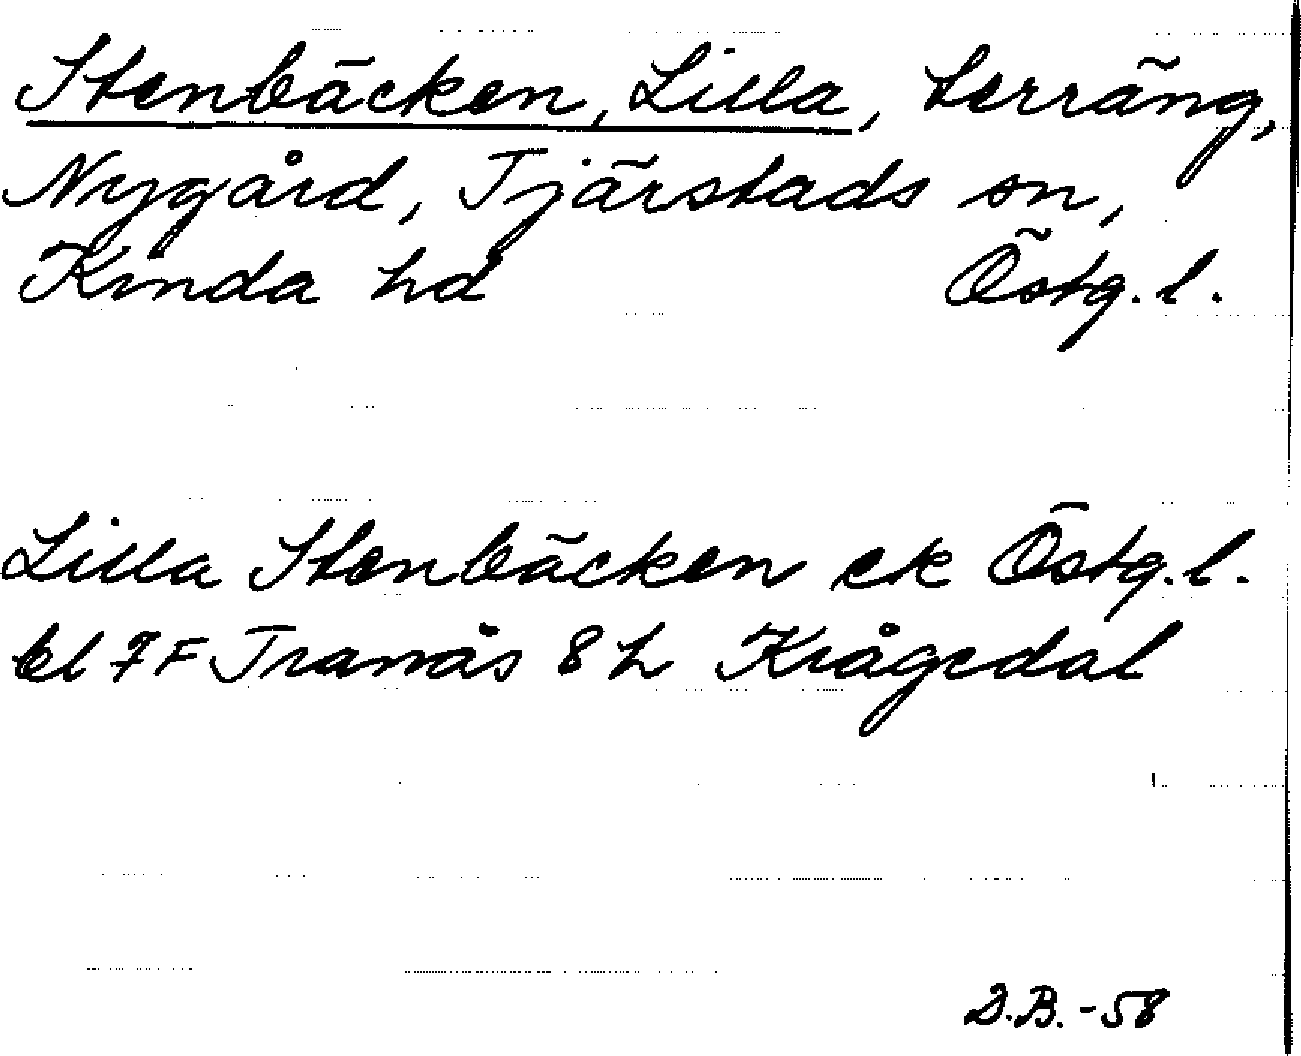 Stenbäcken, Lilla, terräng,
Nygård, Tjärstads sn,
Kinda hd Östg. l.
Lilla Stenbäcken ek Östg. l.
bl 7F Tranås 8 h Krågedal
D.B. -58